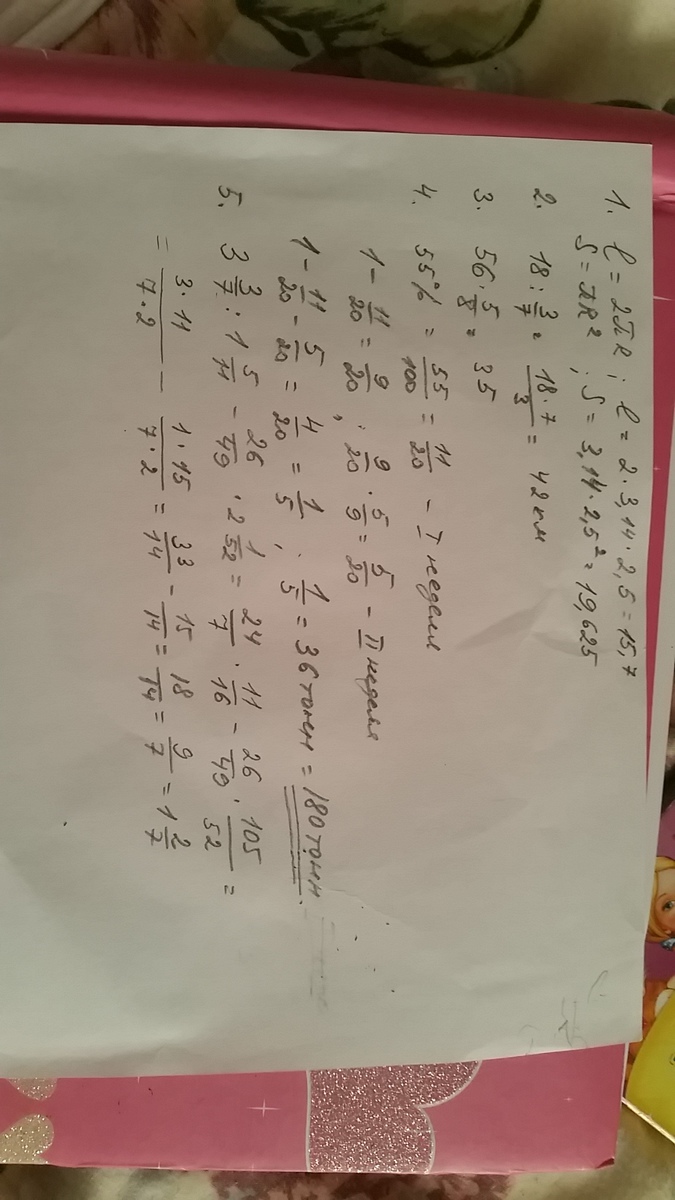 1. ℓ = 2πR ; ℓ = 2·3,14·2,5 = 15,7
S = πR² ; S = 3,14·2,5² = 19,625
2. 18 : 3/7 = 18·7/3 = 42 км
3. 56 · 5/8 = 35
4. 55% = 55/100 = 11/20 - I неделя
1 - 11/20 = 9/20 ; 9/20 · 5/9 = 5/20 - II неделя
1 - 11/20 - 5/20 = 4/20 = 1/5 ; 1/5 = 36 тонн = 180 тонн
5. 3 3/7 : 1 5/11 - 26/49 · 2 1/52 = 24/7 · 11/16 - 26/49 · 105/52 =
= 3·11/7·2 - 1·15/7·2 = 33/14 - 15/14 = 18/14 = 9/7 = 1 2/7